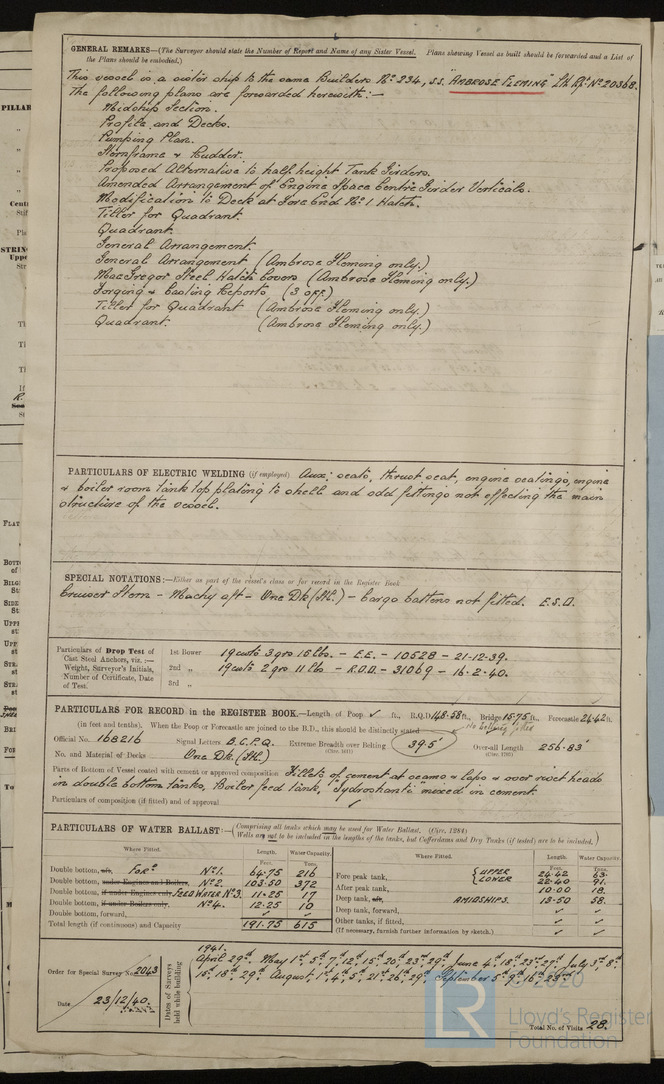 GENERAL REMARKS—(The Surveyor should state the Number of Report and Name of any Sister Vessel. Plans showing Vessel as built should be forwarded and a List of
the Plans should be embodied.)
This vessel is a sister ship to the same Builders No 234, s.s. "AMBROSE FLEMING" Lth Rpt No 20368.
The following plans are forwarded herewith:—
Midship Section.
Profile and Decks.
Pumping Plan.
Sternframe & Rudder.
Proposed Alternative to half height Tank Girders.
Amended Arrangement of Engine Space Centre Girder Verticals.
Modification to Deck at Fore End No 1 Hatch.
Tiller for Quadrant
Quadrant
General Arrangement.
General Arrangement (Ambrose Fleming only.)
MacGregor Steel Hatch Covers (Ambrose Fleming only.)
Forging & Casting Reports (3 off.)
Tiller for Quadrant (Ambrose Fleming only.)
Quadrant. (Ambrose Fleming only.)
PARTICULARS OF ELECTRIC WELDING (if employed) Aux: seats, thrust seat, engine seatings, engine
& boiler room tank top plating to shell and odd fittings not affecting the main
structure of the vessel.
SPECIAL NOTATIONS:—Either as part of the vessel's class or for record in the Register Book
Cruiser Stern — Machy aft — One Dk (Stl.) — Cargo battens not fitted. E.S.D.
Particulars of Drop Test of
Cast Steel Anchors, viz.:—
Weight, Surveyor's Initials,
Number of Certificate, Date
of Test.
1st Bower 19 cwts 3 qrs 15 lbs. — E.E. — 10528 — 21-12-39.
2nd „ 19 cwts 2 qrs 11 lbs — R.D.D. — 31069 — 16-2-40.
3rd „
PARTICULARS FOR RECORD in the REGISTER BOOK.—Length of Poop ✓ ft., R.Q.D. 148.58 ft., Bridge 15.75 ft., Forecastle 24.42 ft.
(in feet and tenths). When the Poop or Forecastle are joined to the B.D., this should be distinctly stated
No belting fitted
Official No. 168216 Signal Letters B.C.P.Q. Extreme Breadth over Belting 39.5' Over-all Length 256.83
No. and Material of Decks One Dk. (Stl.)
Parts of Bottom of Vessel coated with cement or approved composition Fillets of cement at seams & laps & over rivet heads
in double bottom tanks, Boiler feed tank, Hydroshanti mixed in cement.
Particulars of composition (if fitted) and of approval ✓
PARTICULARS OF WATER BALLAST:—(Comprising all tanks which may be used for Water Ballast. (Circ. 1284)
Wells are not to be included in the lengths of the tanks, but Cofferdams and Dry Tanks (if tested) are to be included.)
Where Fitted. Length. Water Capacity. Where Fitted. Length. Water Capacity.
Feet. Tons. Feet. Tons.
Double bottom, aft, Ford No 1. 64.75 216
Double bottom, under Engines and Boilers, No 2. 103.50 372
Double bottom, if under Engines only, FEED WATER No 3. 11.25 17
Double bottom, if under Boilers only, No 4. 12.25 10
Double bottom, forward, ✓ ✓
Total length (if continuous) and Capacity 191.75 615
Fore peak tank, UPPER 24.42 63.
LOWER 22.40 91.
After peak tank, 10.00 18.
Deep tank, aft, AMIDSHIPS. 13.50 58.
Deep tank, forward, ✓ ✓
Other tanks, if fitted, ✓ ✓
(If necessary, furnish further information by sketch.) ✓ ✓
Order for Special Survey No. 2043
Date 23/12/40.
Dates of Surveys
held while building
1941.
April 29th May 1st, 5th, 7th, 12th, 15th, 20th, 23rd, 29th, June 4th, 18th, 23rd, 27th, July 3rd, 8th,
15th, 18th, 29th August 1st, 4th, 5th, 21st, 26th, 29th September 5th, 9th, 16th
Total No. of Visits 28.
© 2020
LR
Lloyd's Register
Foundation
PILLAR
STRIN
FLAT